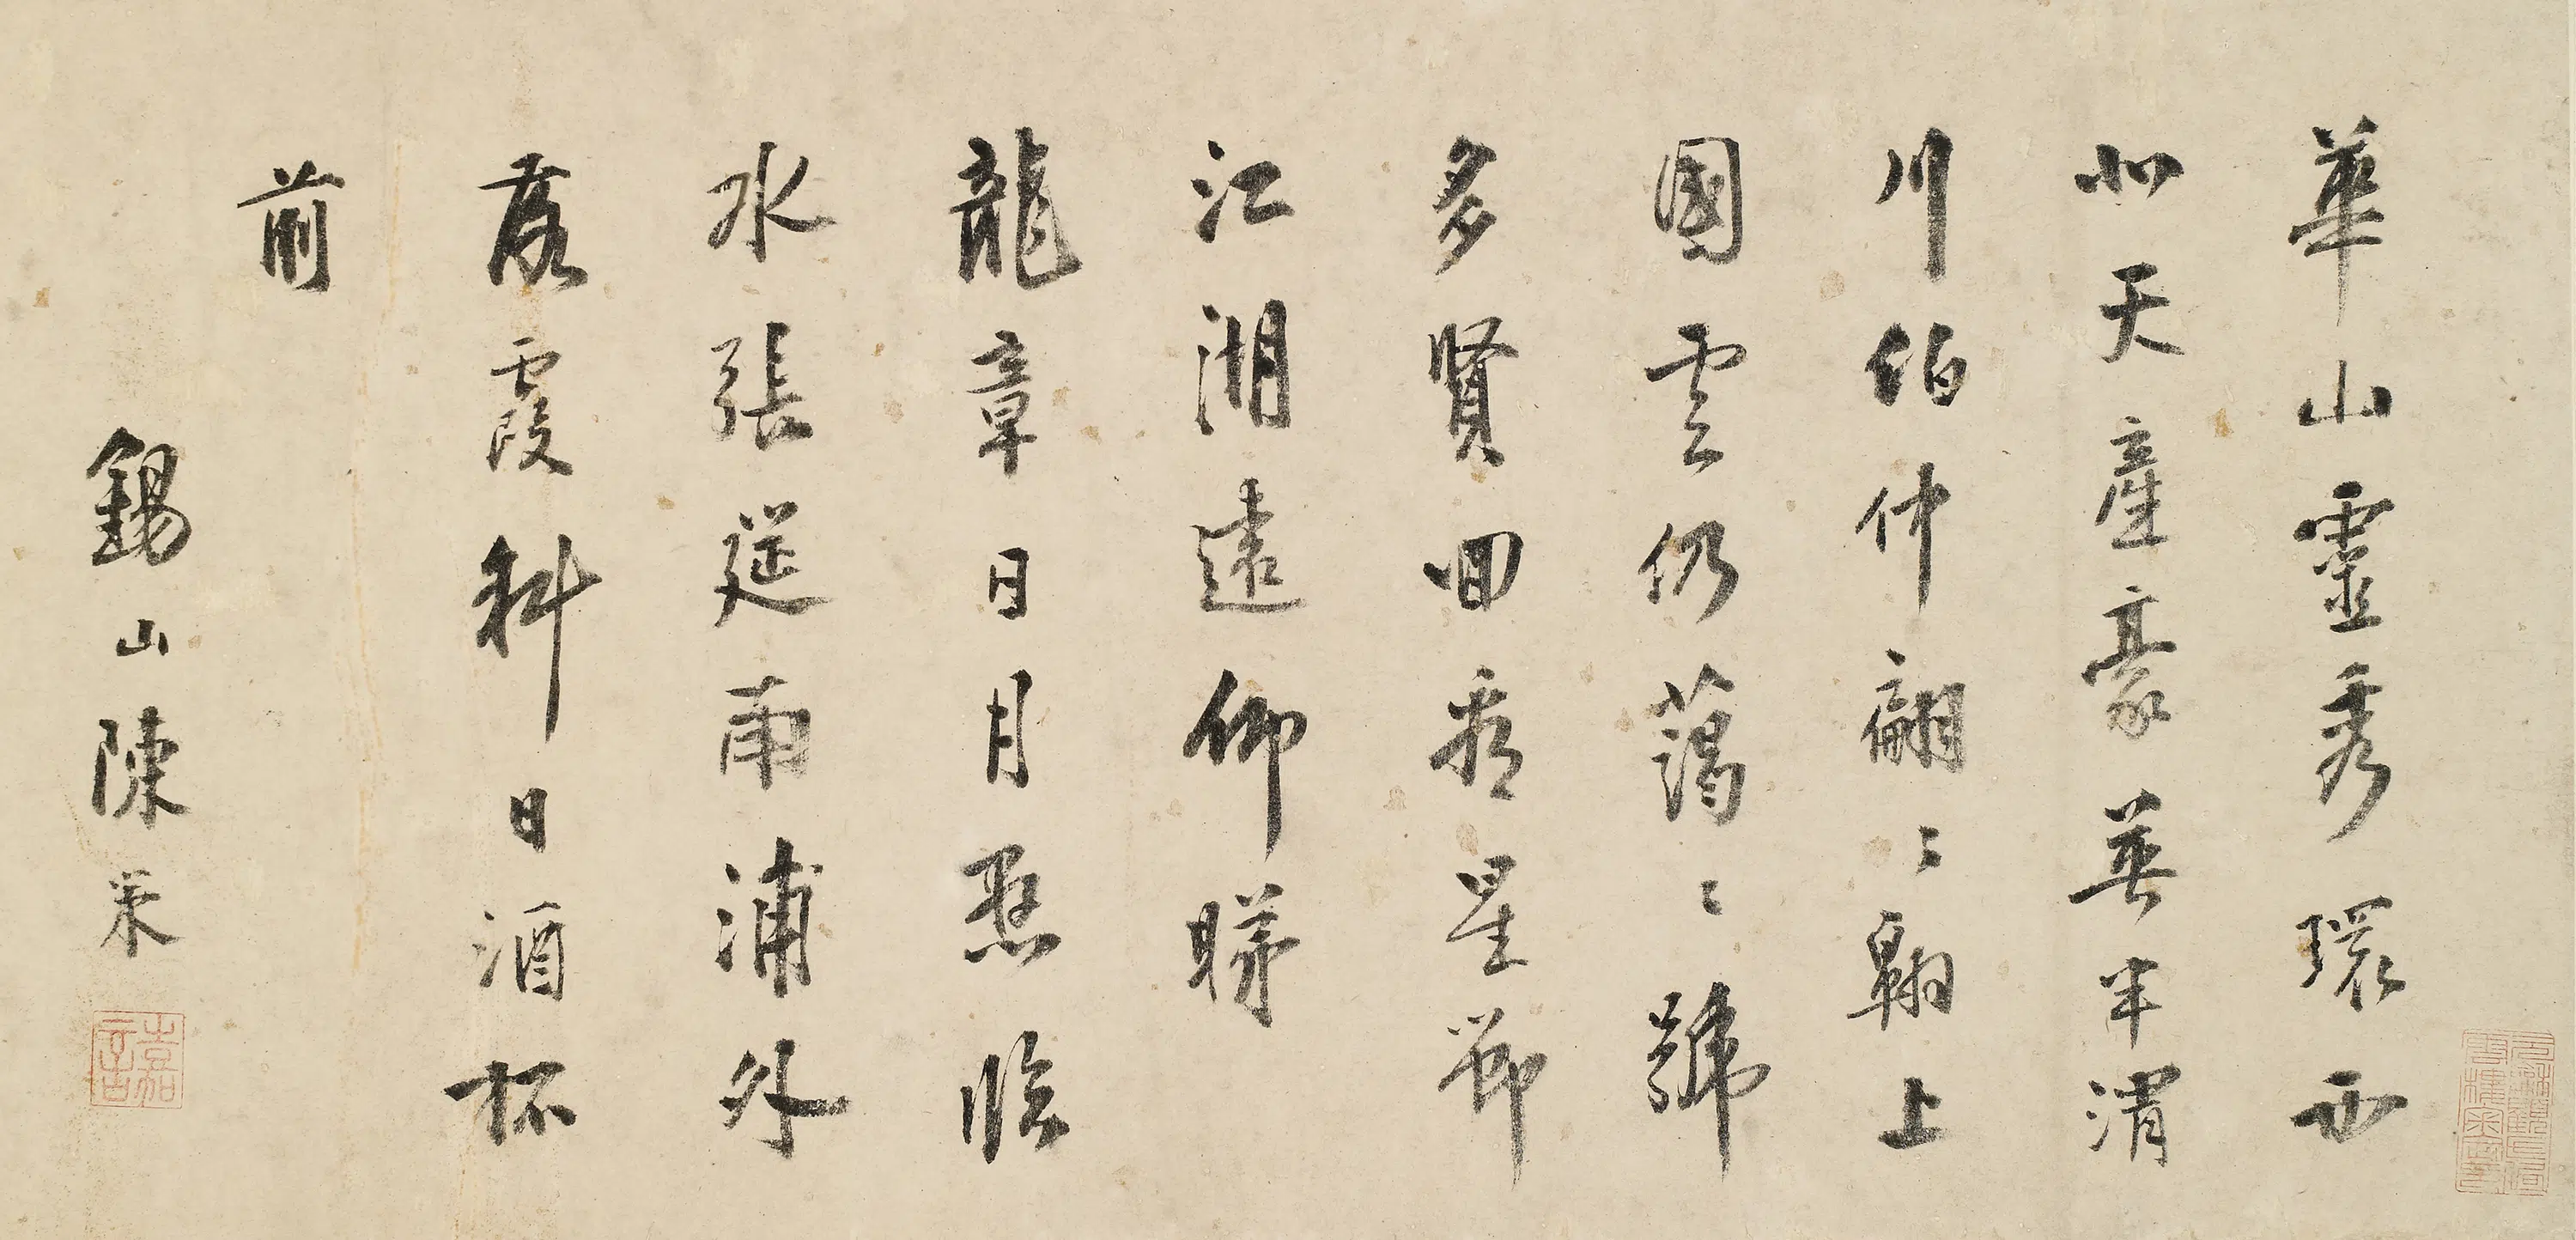 華山靈秀環西
北天產豪英半渭
川伯仲翩〻翱上
國雲仍藹〻號
多賢回看星節
江湖遠仰睇
龍章日月懸臨
水張筵南浦外
落霞斜日酒杯
前
錫山陳策